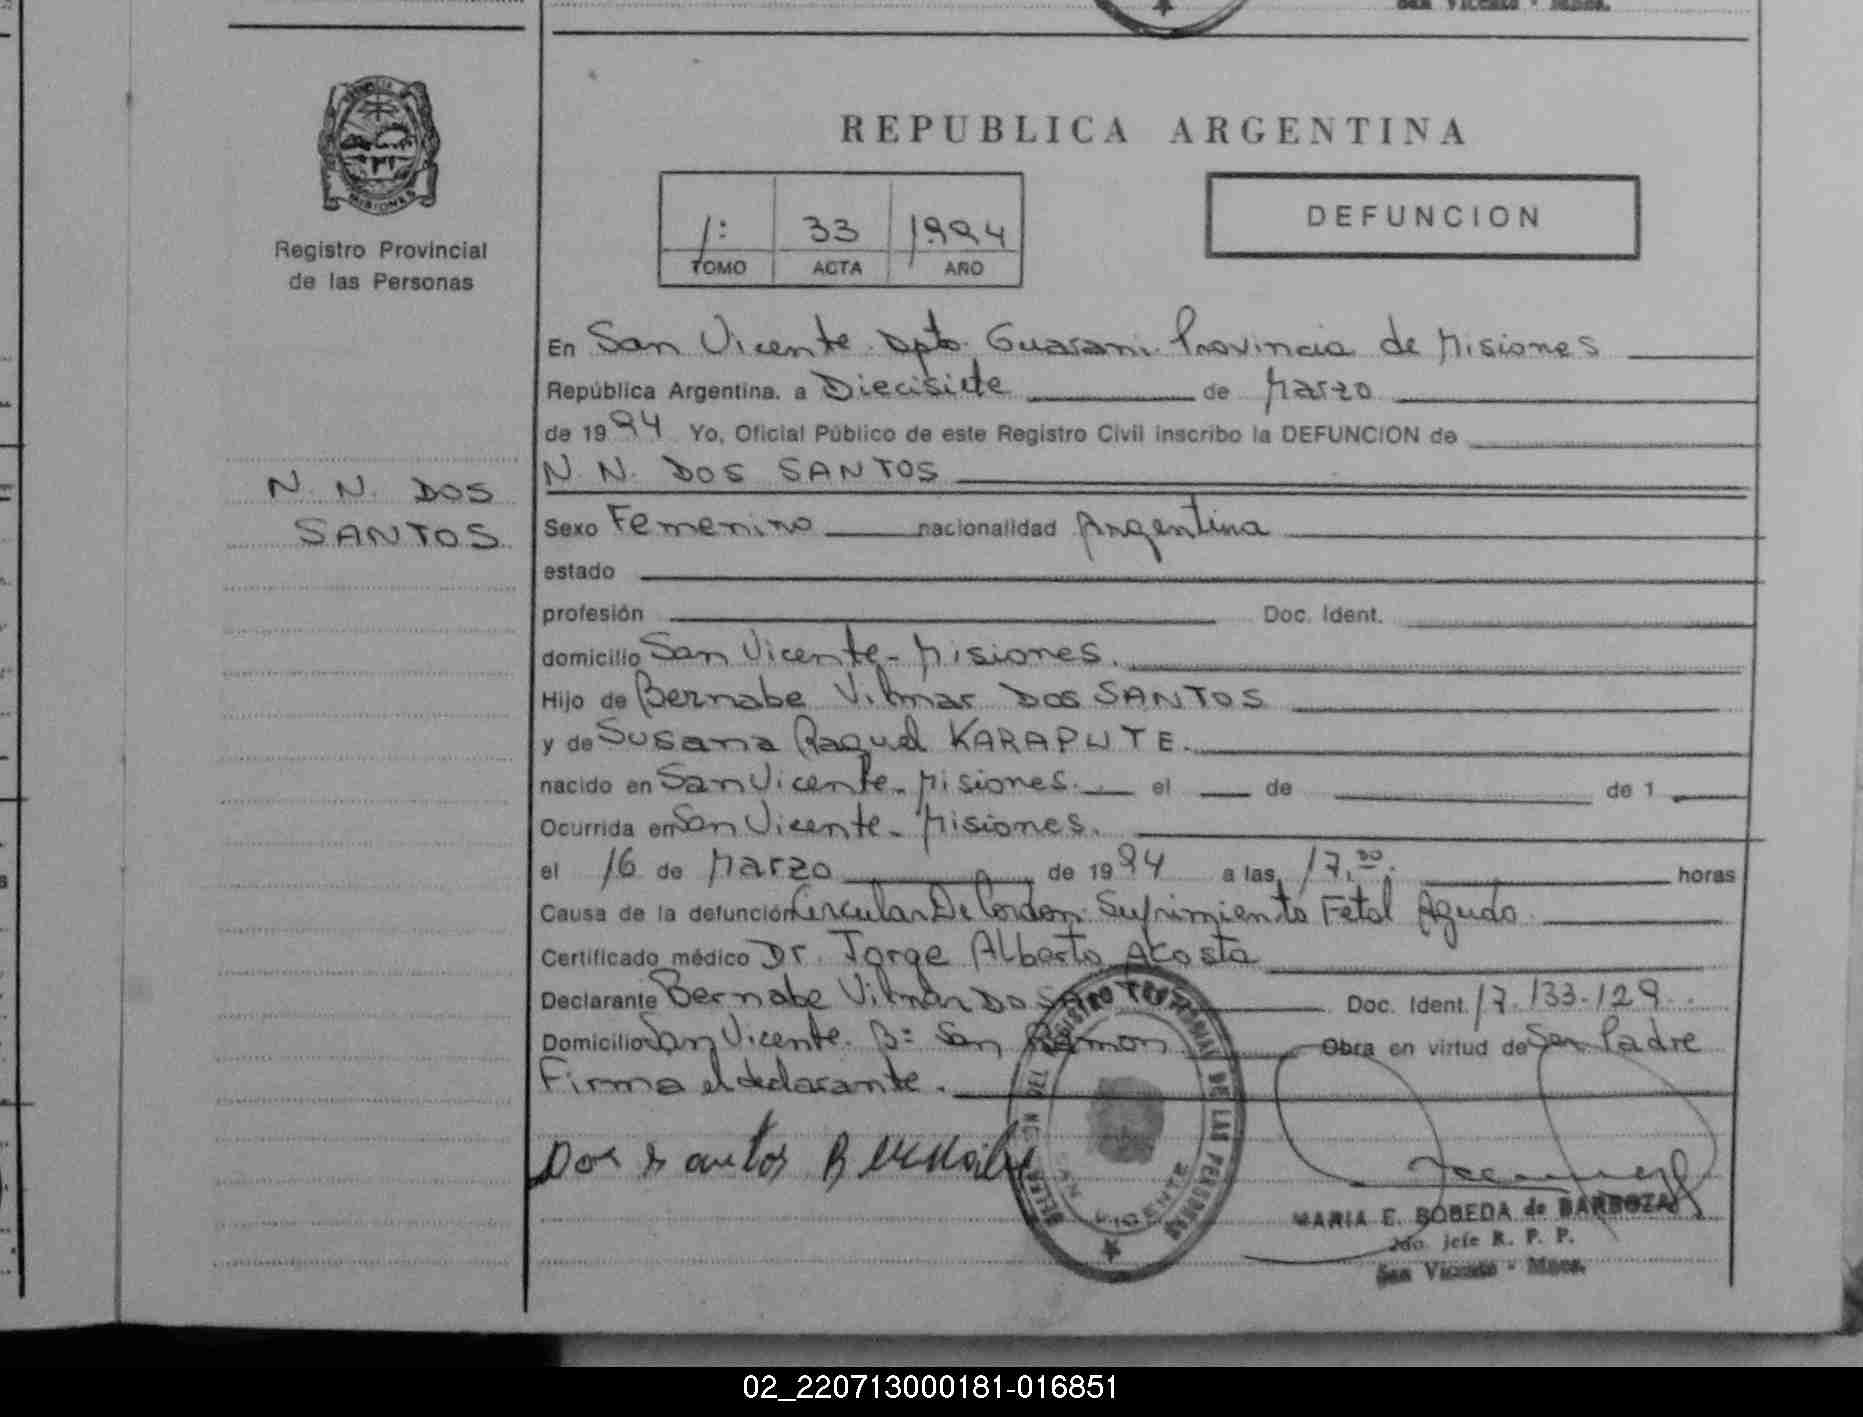 San Vicente - Mnes.
PROVINCIA DE
MISIONES
Registro Provincial
de las Personas
REPUBLICA ARGENTINA
1: 33 1994
TOMO ACTA AÑO
DEFUNCION
En San Vicente Dpto. Guarani. Provincia de Misiones
República Argentina. a Diecisiete de Marzo
de 1994 Yo, Oficial Público de este Registro Civil inscribo la DEFUNCION de
N. N. DOS SANTOS
N. N. DOS
SANTOS
Sexo Femenino nacionalidad Argentina
estado
profesión Doc. Ident.
domicilio San Vicente - Misiones.
Hijo de Bernabe Vilmar DOS SANTOS
y de Susana Raquel KARAPUTE.
nacido en San Vicente - Misiones. el de de 1
Ocurrida en San Vicente - Misiones.
el 16 de Marzo de 1994 a las 17,00. horas
Causa de la defunción Circular De Cordon. Sufrimiento Fetal Agudo.
Certificado médico Dr. Jorge Alberto Acosta
Declarante Bernabe Vilmar DOS SANTOS Doc. Ident. 17.133.129.
Domicilio San Vicente. B: San Ramon Obra en virtud de Ser Padre
Firma el declarante.
Dos santos Bernabe
DEL REGISTRO PROVINCIAL DE LAS PERSONAS
SAN VICENTE
MARIA E. BOBEDA de BARBOZA
2do. Jefe R. P. P.
San Vicente - Mnes.
02_220713000181-016851